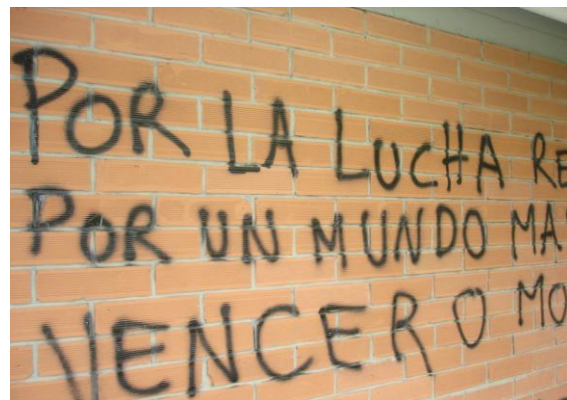 POR LA LUCHA RE
POR UN MUNDO MA
VENCER O MO